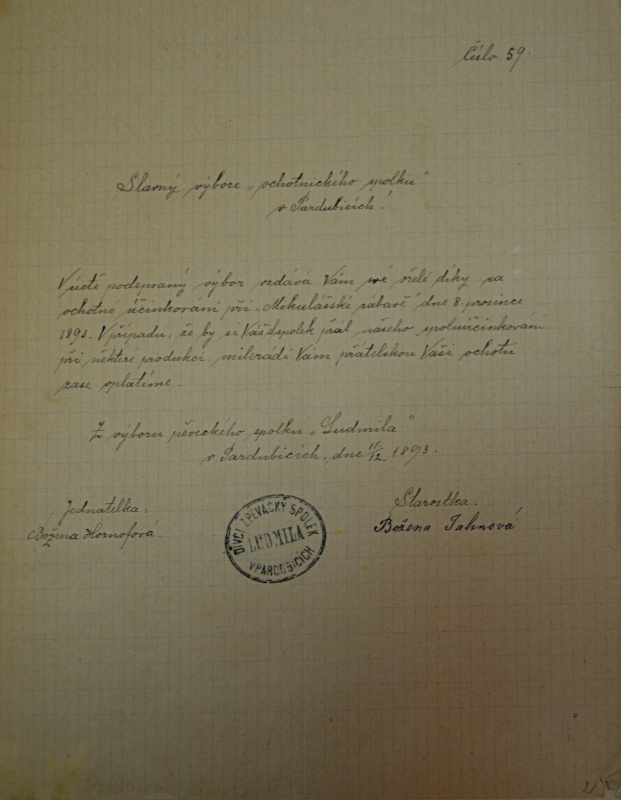 Číslo 59.
Slavný výbore „ochotnického spolku“
v Pardubicích!
V úctě podepsaný výbor vzdává Vám své vřelé díky za
ochotné účinkování při „Mikulášské zábavě“ dne 8. prosince
1893. V případu, že by si Váš spolek přál našeho spoluúčinkování
při některé produkci, milerádi Vám přátelskou Vaši ochotu
zase oplatíme.
Z výboru pěveckého spolku „Ludmila“
v Pardubicích, dne 11/12 1893.
Jednatelka:
Božena Hornofová.
Starostka:
Božena Jahnová
DÍVČÍ ZPĚVÁCKÝ SPOLEK
LUDMILA
V PARDUBICÍCH